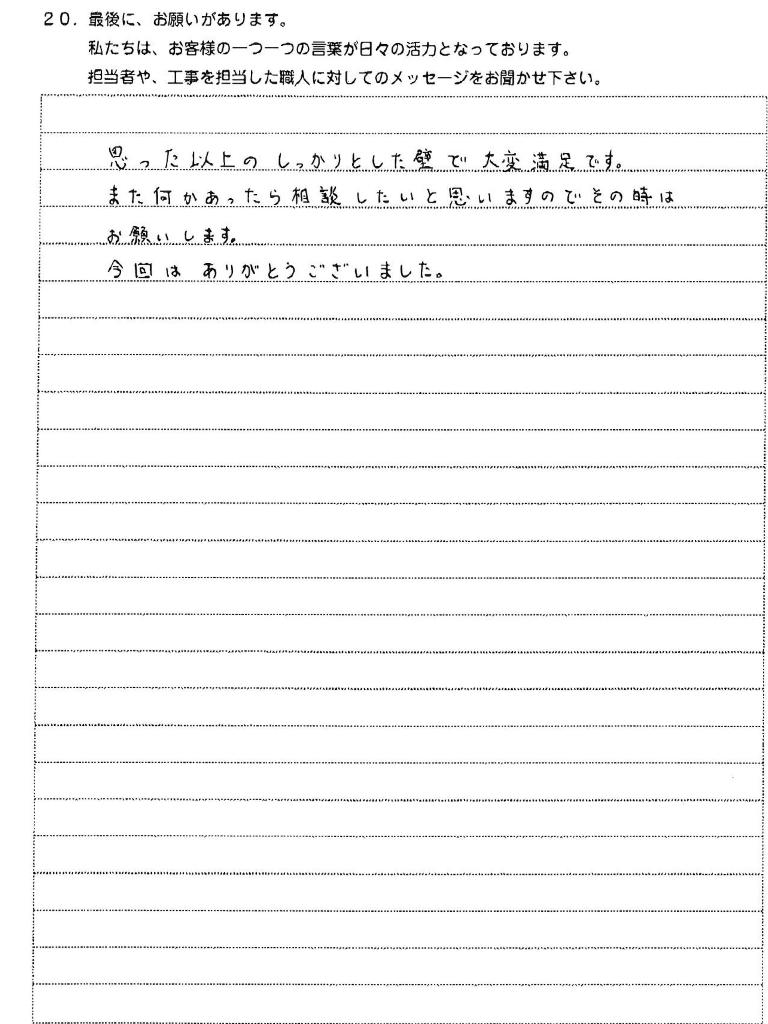 20. 最後に、お願いがあります。
私たちは、お客様の一つ一つの言葉が日々の活力となっております。
担当者や、工事を担当した職人に対してのメッセージをお聞かせ下さい。
思った以上の しっかりとした壁で 大変満足です。
また何かあったら相談したいと思いますのでその時は
お願いします。
今回は ありがとうございました。